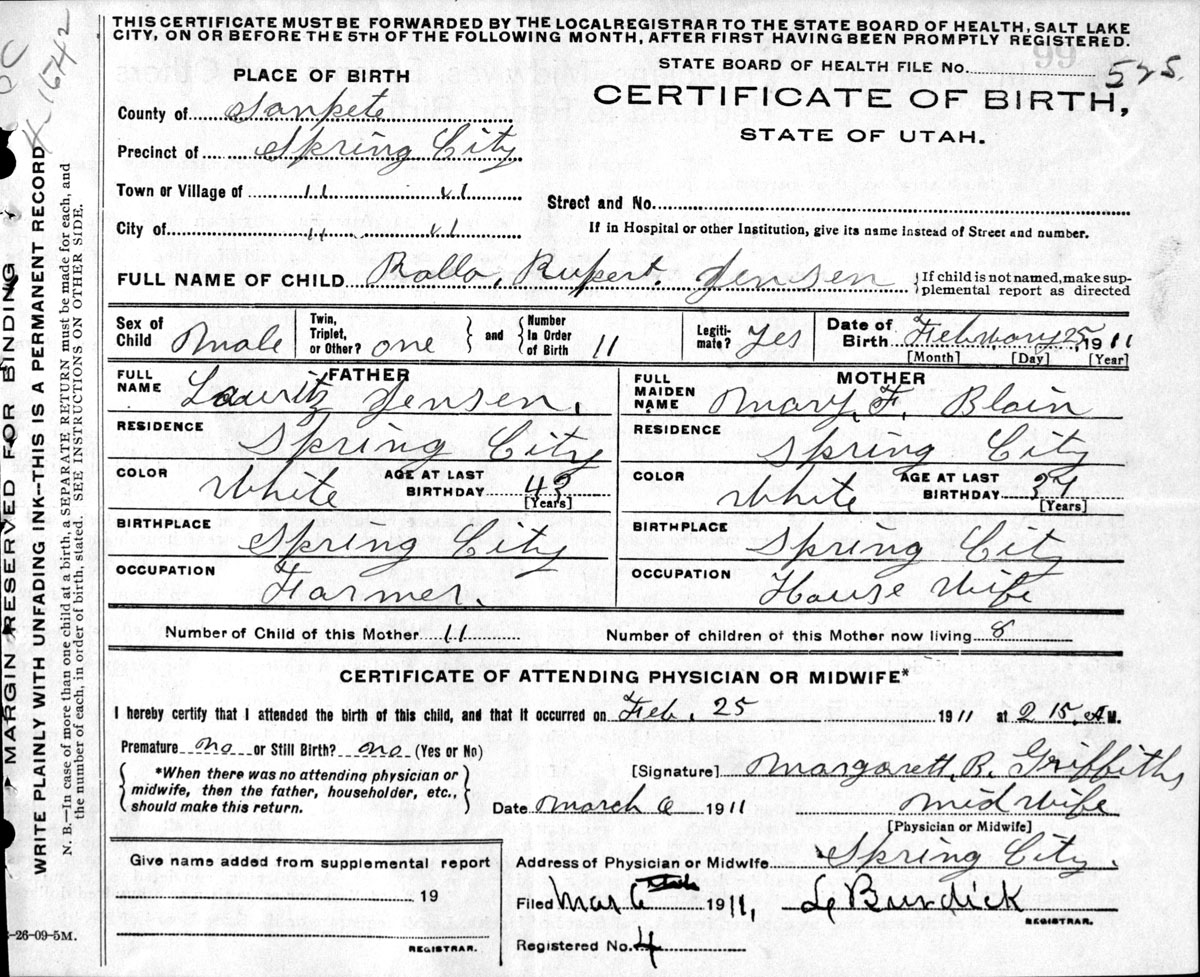 THIS CERTIFICATE MUST BE FORWARDED BY THE LOCAL REGISTRAR TO THE STATE BOARD OF HEALTH, SALT LAKE
CITY, ON OR BEFORE THE 5TH OF THE FOLLOWING MONTH, AFTER FIRST HAVING BEEN PROMPTLY REGISTERED.
PLACE OF BIRTH
STATE BOARD OF HEALTH FILE NO. 525.
CERTIFICATE OF BIRTH,
STATE OF UTAH.
County of Sanpete
Precinct of Spring City
Town or Village of " "
Street and No.
City of " "
If in Hospital or other Institution, give its name instead of Street and number.
FULL NAME OF CHILD Rollo, Rupert. Jensen {If child is not named, make sup-
plemental report as directed
Sex of Child Male Twin, Triplet, or Other? one } and { Number In Order of Birth 11 Legiti-mate? Yes Date of Birth February 25, 1911
[Month] [Day] [Year]
FATHER
FULL NAME Lauritz Jensen.
RESIDENCE Spring City
COLOR White AGE AT LAST BIRTHDAY 43
[Years]
BIRTHPLACE Spring City
OCCUPATION Farmer.
MOTHER
FULL MAIDEN NAME Mary. F. Blain
RESIDENCE Spring City
COLOR White AGE AT LAST BIRTHDAY
[Years]
BIRTHPLACE Spring City
OCCUPATION House Wife
Number of Child of this Mother 11 Number of children of this Mother now living 8
CERTIFICATE OF ATTENDING PHYSICIAN OR MIDWIFE*
I hereby certify that I attended the birth of this child, and that it occurred on Feb. 25 1911 at 2 15. A M.
Premature no or Still Birth? no (Yes or No)
{ *When there was no attending physician or
midwife, then the father, householder, etc.,
should make this return. }
[Signature] Margarett. B. Griffiths
Date March 6 1911 Mid Wife
[Physician or Midwife]
Give name added from supplemental report
19
REGISTRAR.
Address of Physician or Midwife Spring City.
Filed Mar 6 1911, Burdick
REGISTRAR.
Registered No. 4
-26-09-5M.
MARGIN RESERVED FOR BINDING
WRITE PLAINLY WITH UNFADING INK--THIS IS A PERMANENT RECORD
N. B.--In case of more than one child at a birth, a SEPARATE RETURN must be made for each, and
the number of each, in order of birth, stated. SEE INSTRUCTIONS ON OTHER SIDE.